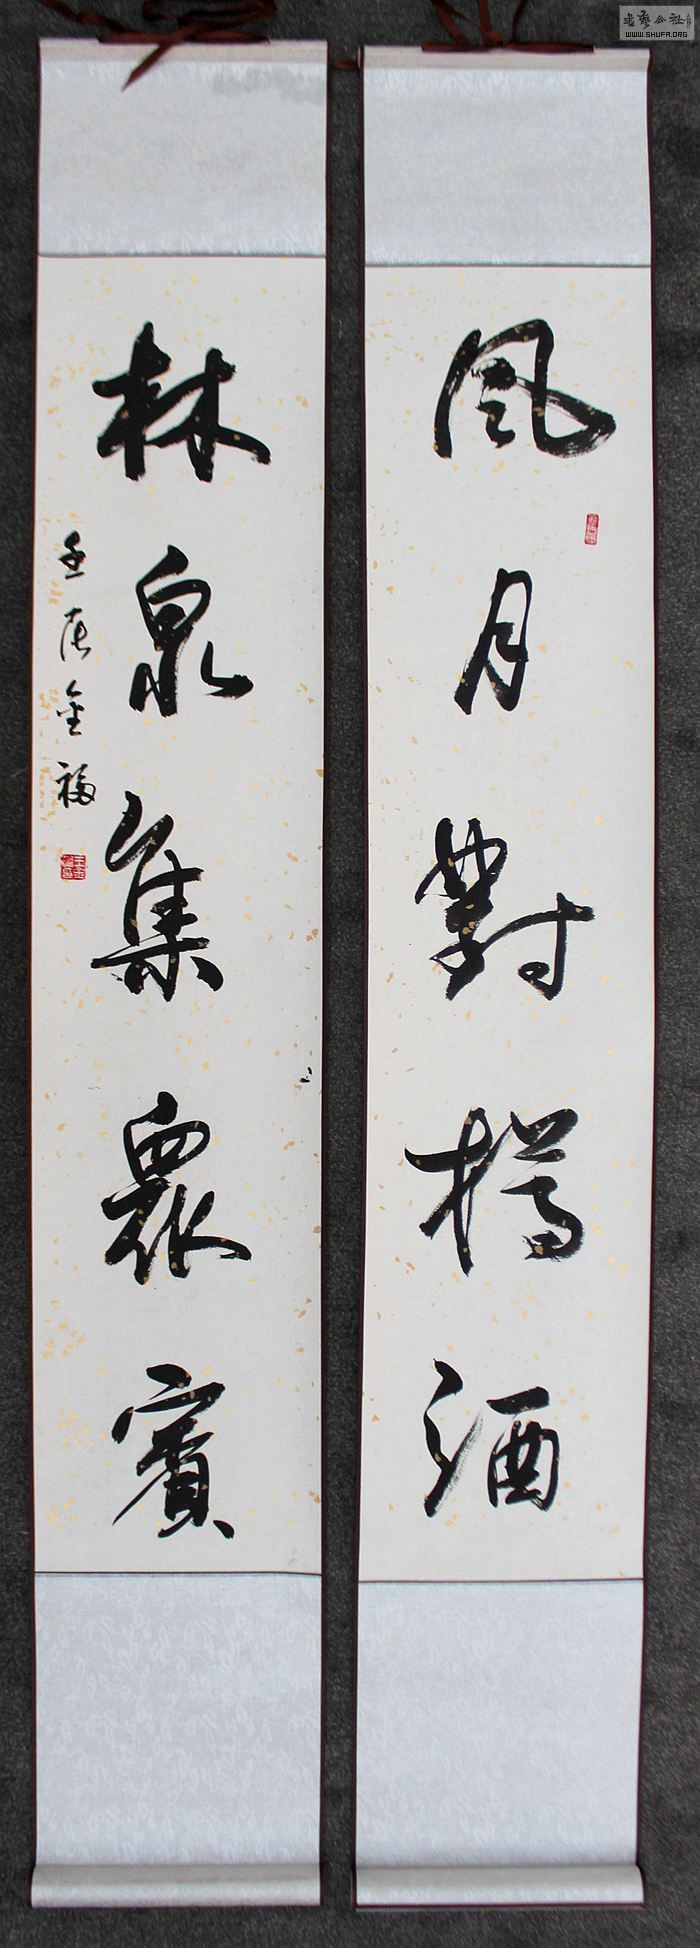 風月對樽酒
林泉集眾賓
金福
書藝公社
WWW.SHUFA.ORG